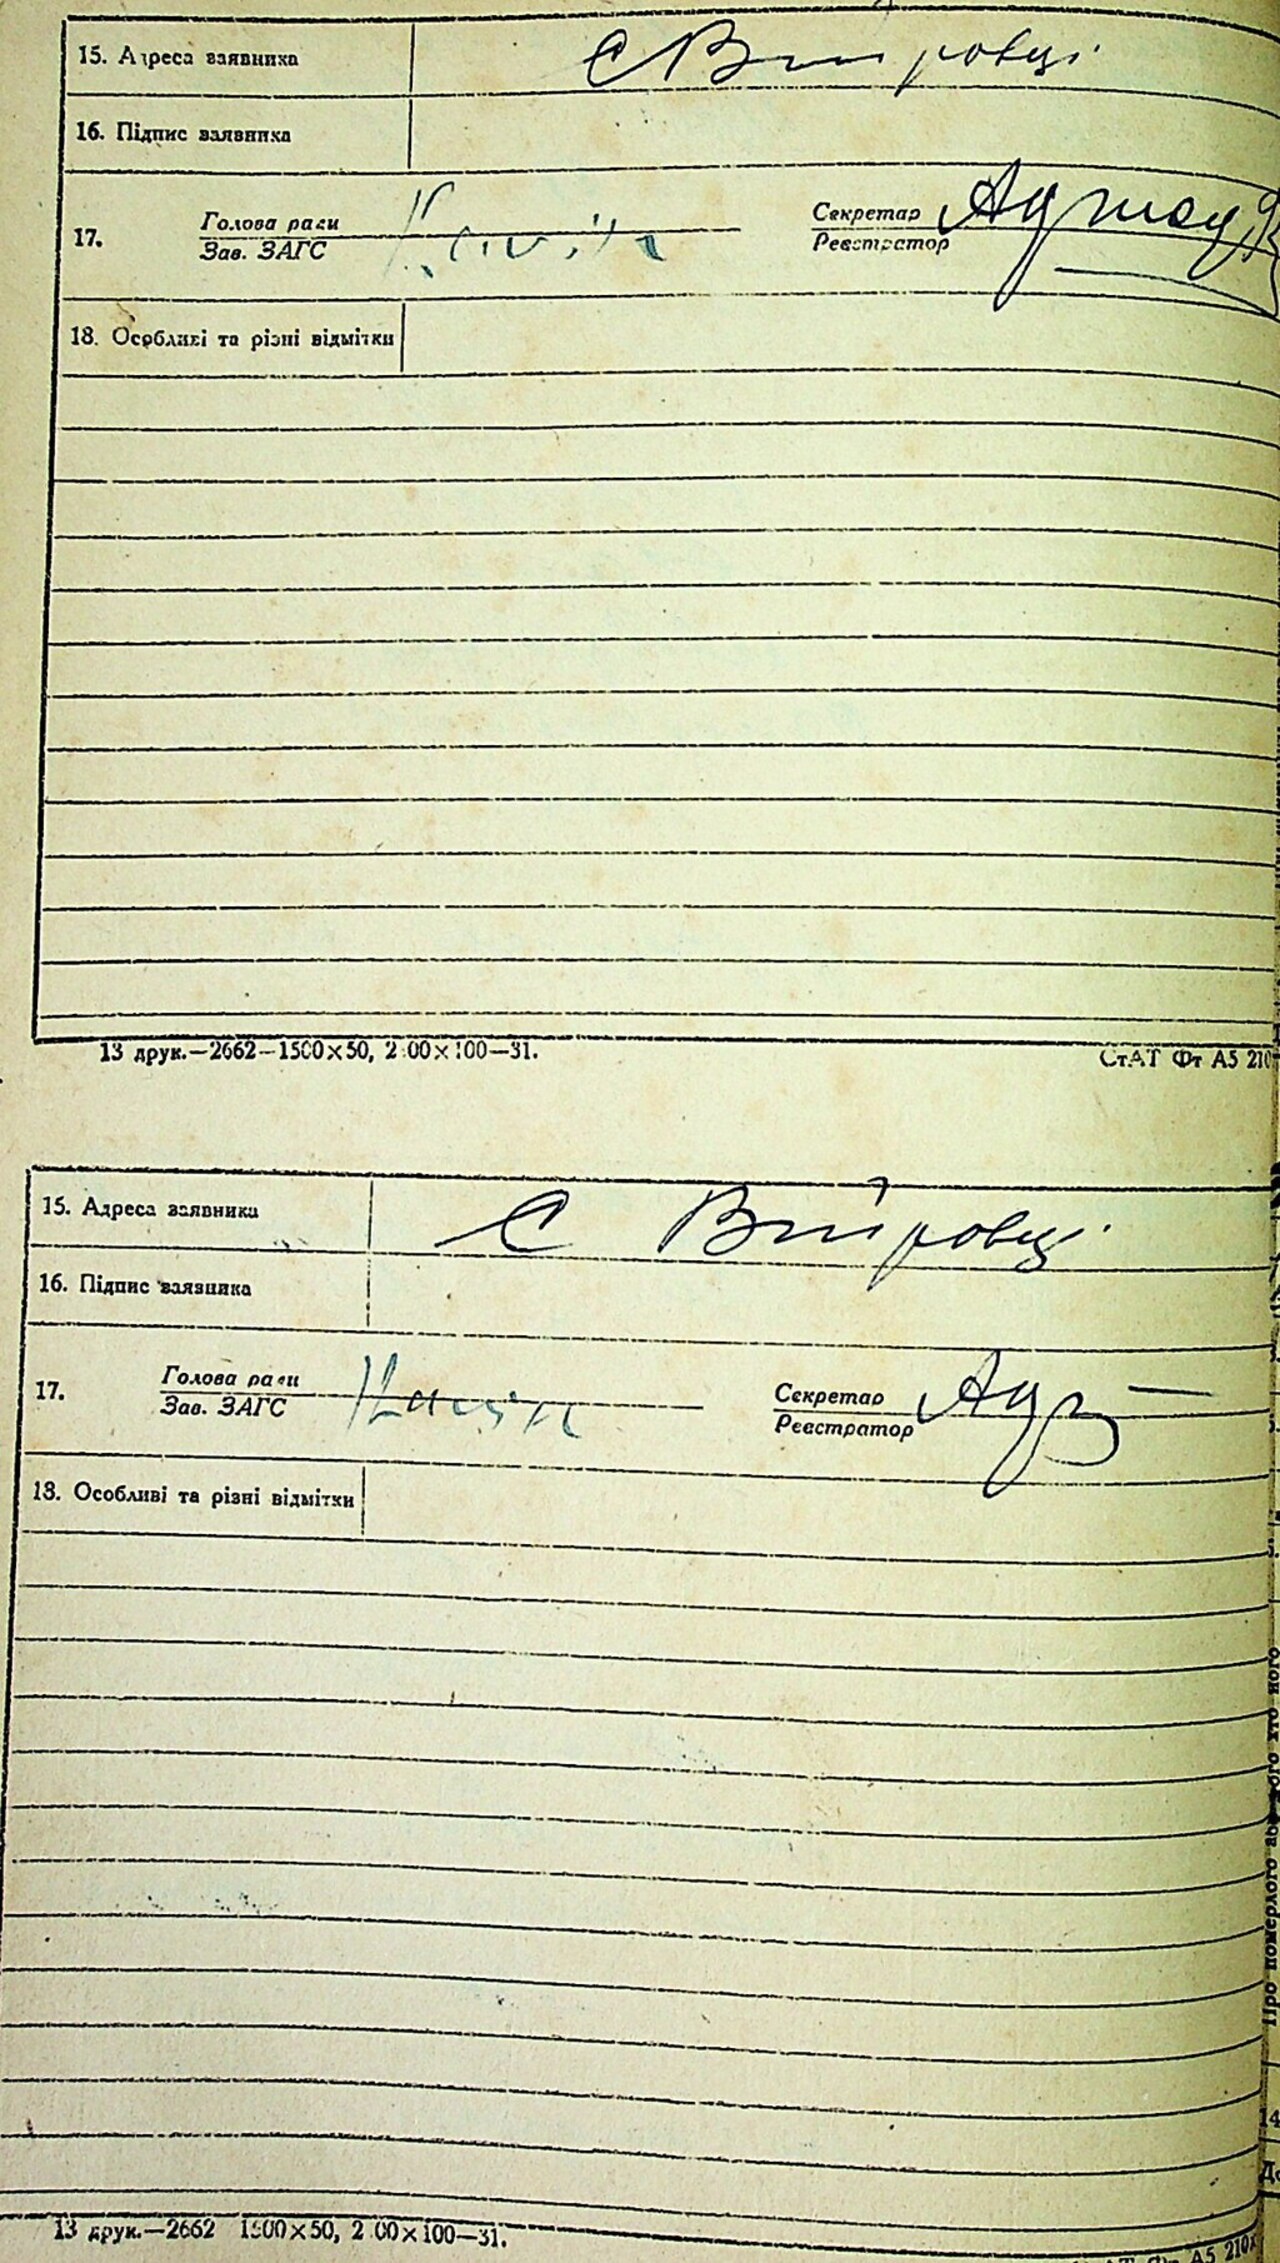 15. Адреса заявника С Війтовці
16. Підпис заявника
17. Голова ради
Зав. ЗАГС
Секретар
Реєстратор
18. Особливі та різні відмітки
13 друк.—2662—1500×50, 2 00×100—31.
СтАТ Фт А5 210
15. Адреса заявника С
16. Підпис заявника
17. Голова ради
Зав. ЗАГС
Секретар
Реєстратор
18. Особливі та різні відмітки
13 друк.—2662 1500×50, 2 00×100—31.
А5 210
Про померлого
кто його
14